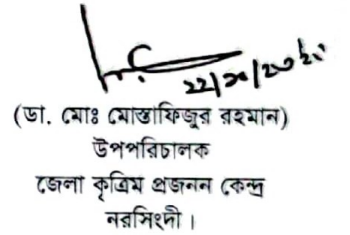 (ডা. মোঃ মোস্তাফিজুর রহমান)
উপপরিচালক
জেলা কৃত্রিম প্রজনন কেন্দ্র
নরসিংদী।